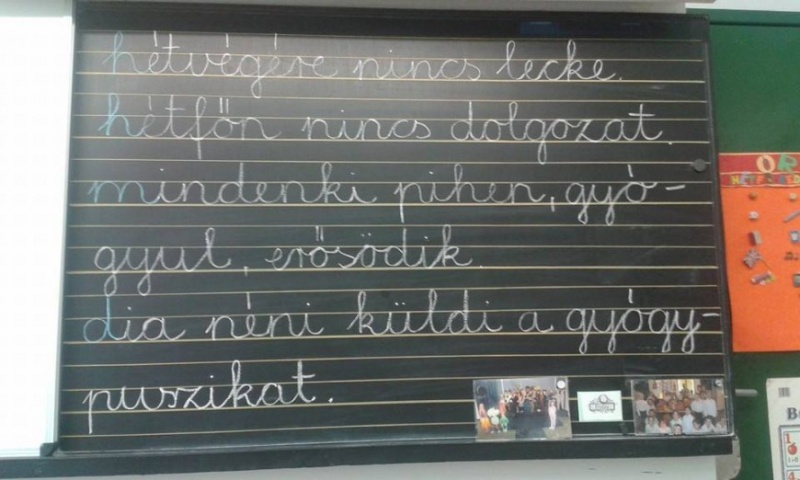 hétvégére nincs lecke.
hétfőn nincs dolgozat.
mindenki pihen, gyó-
gyul, erősödik.
dia néni küldi a gyógy-
puszikat.
OR